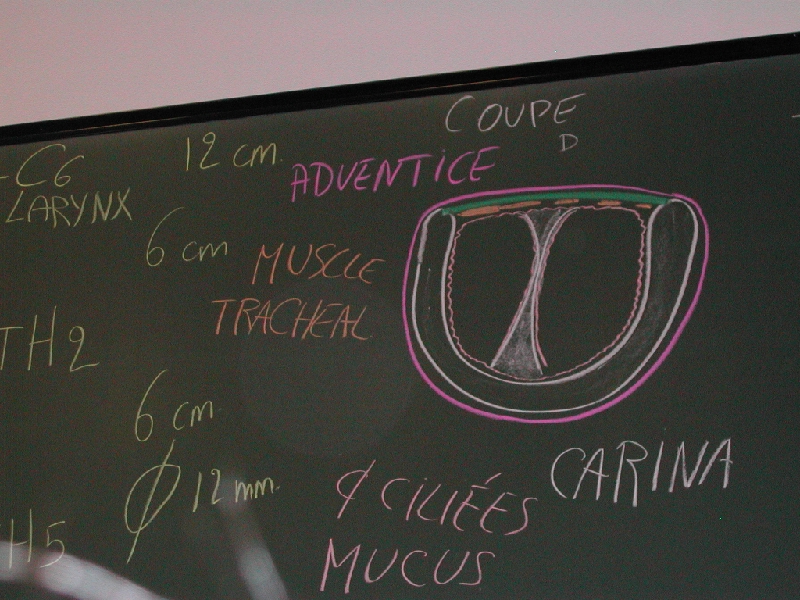 COUPE
D
-C6
LARYNX
12 cm.
ADVENTICE
6 cm
MUSCLE
TRACHEAL
TH2
6 cm
Ø 12 mm.
H5
¢ CILIÉES
MUCUS
CARINA